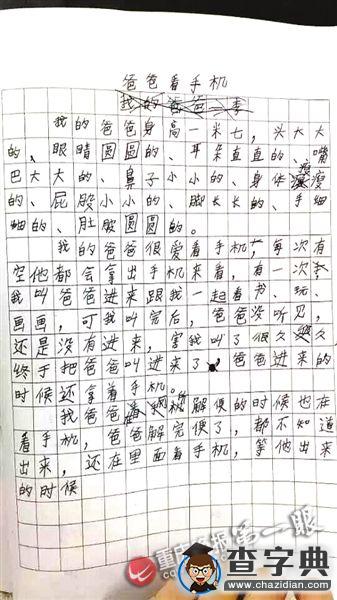 爸爸看手机
我的爸爸一季
我的爸爸身高一米七，头大大
的、眼睛圆圆的、耳朵直直的、嘴
巴大大的、鼻子小小的、身体瘦瘦
的、屁股小小的、脚长长的、手细
细的、肚股圆圆的。
我的爸爸很爱看手机，每次有
空他都会拿出手机来看，有一次，
我叫爸爸进来跟我一起看书、玩、
画画，可我叫完后，爸爸没听见，
还是没有进来，害我叫了很久很久
终于把爸爸叫进来了，爸爸进来的
时候还拿着手机。
我爸爸解便的时候也在
看手机，爸爸解完便了，都不知道
出来，还在里面看手机，等他出来
的时候
重庆晨报第一眼
查字典
www.chazidian.com